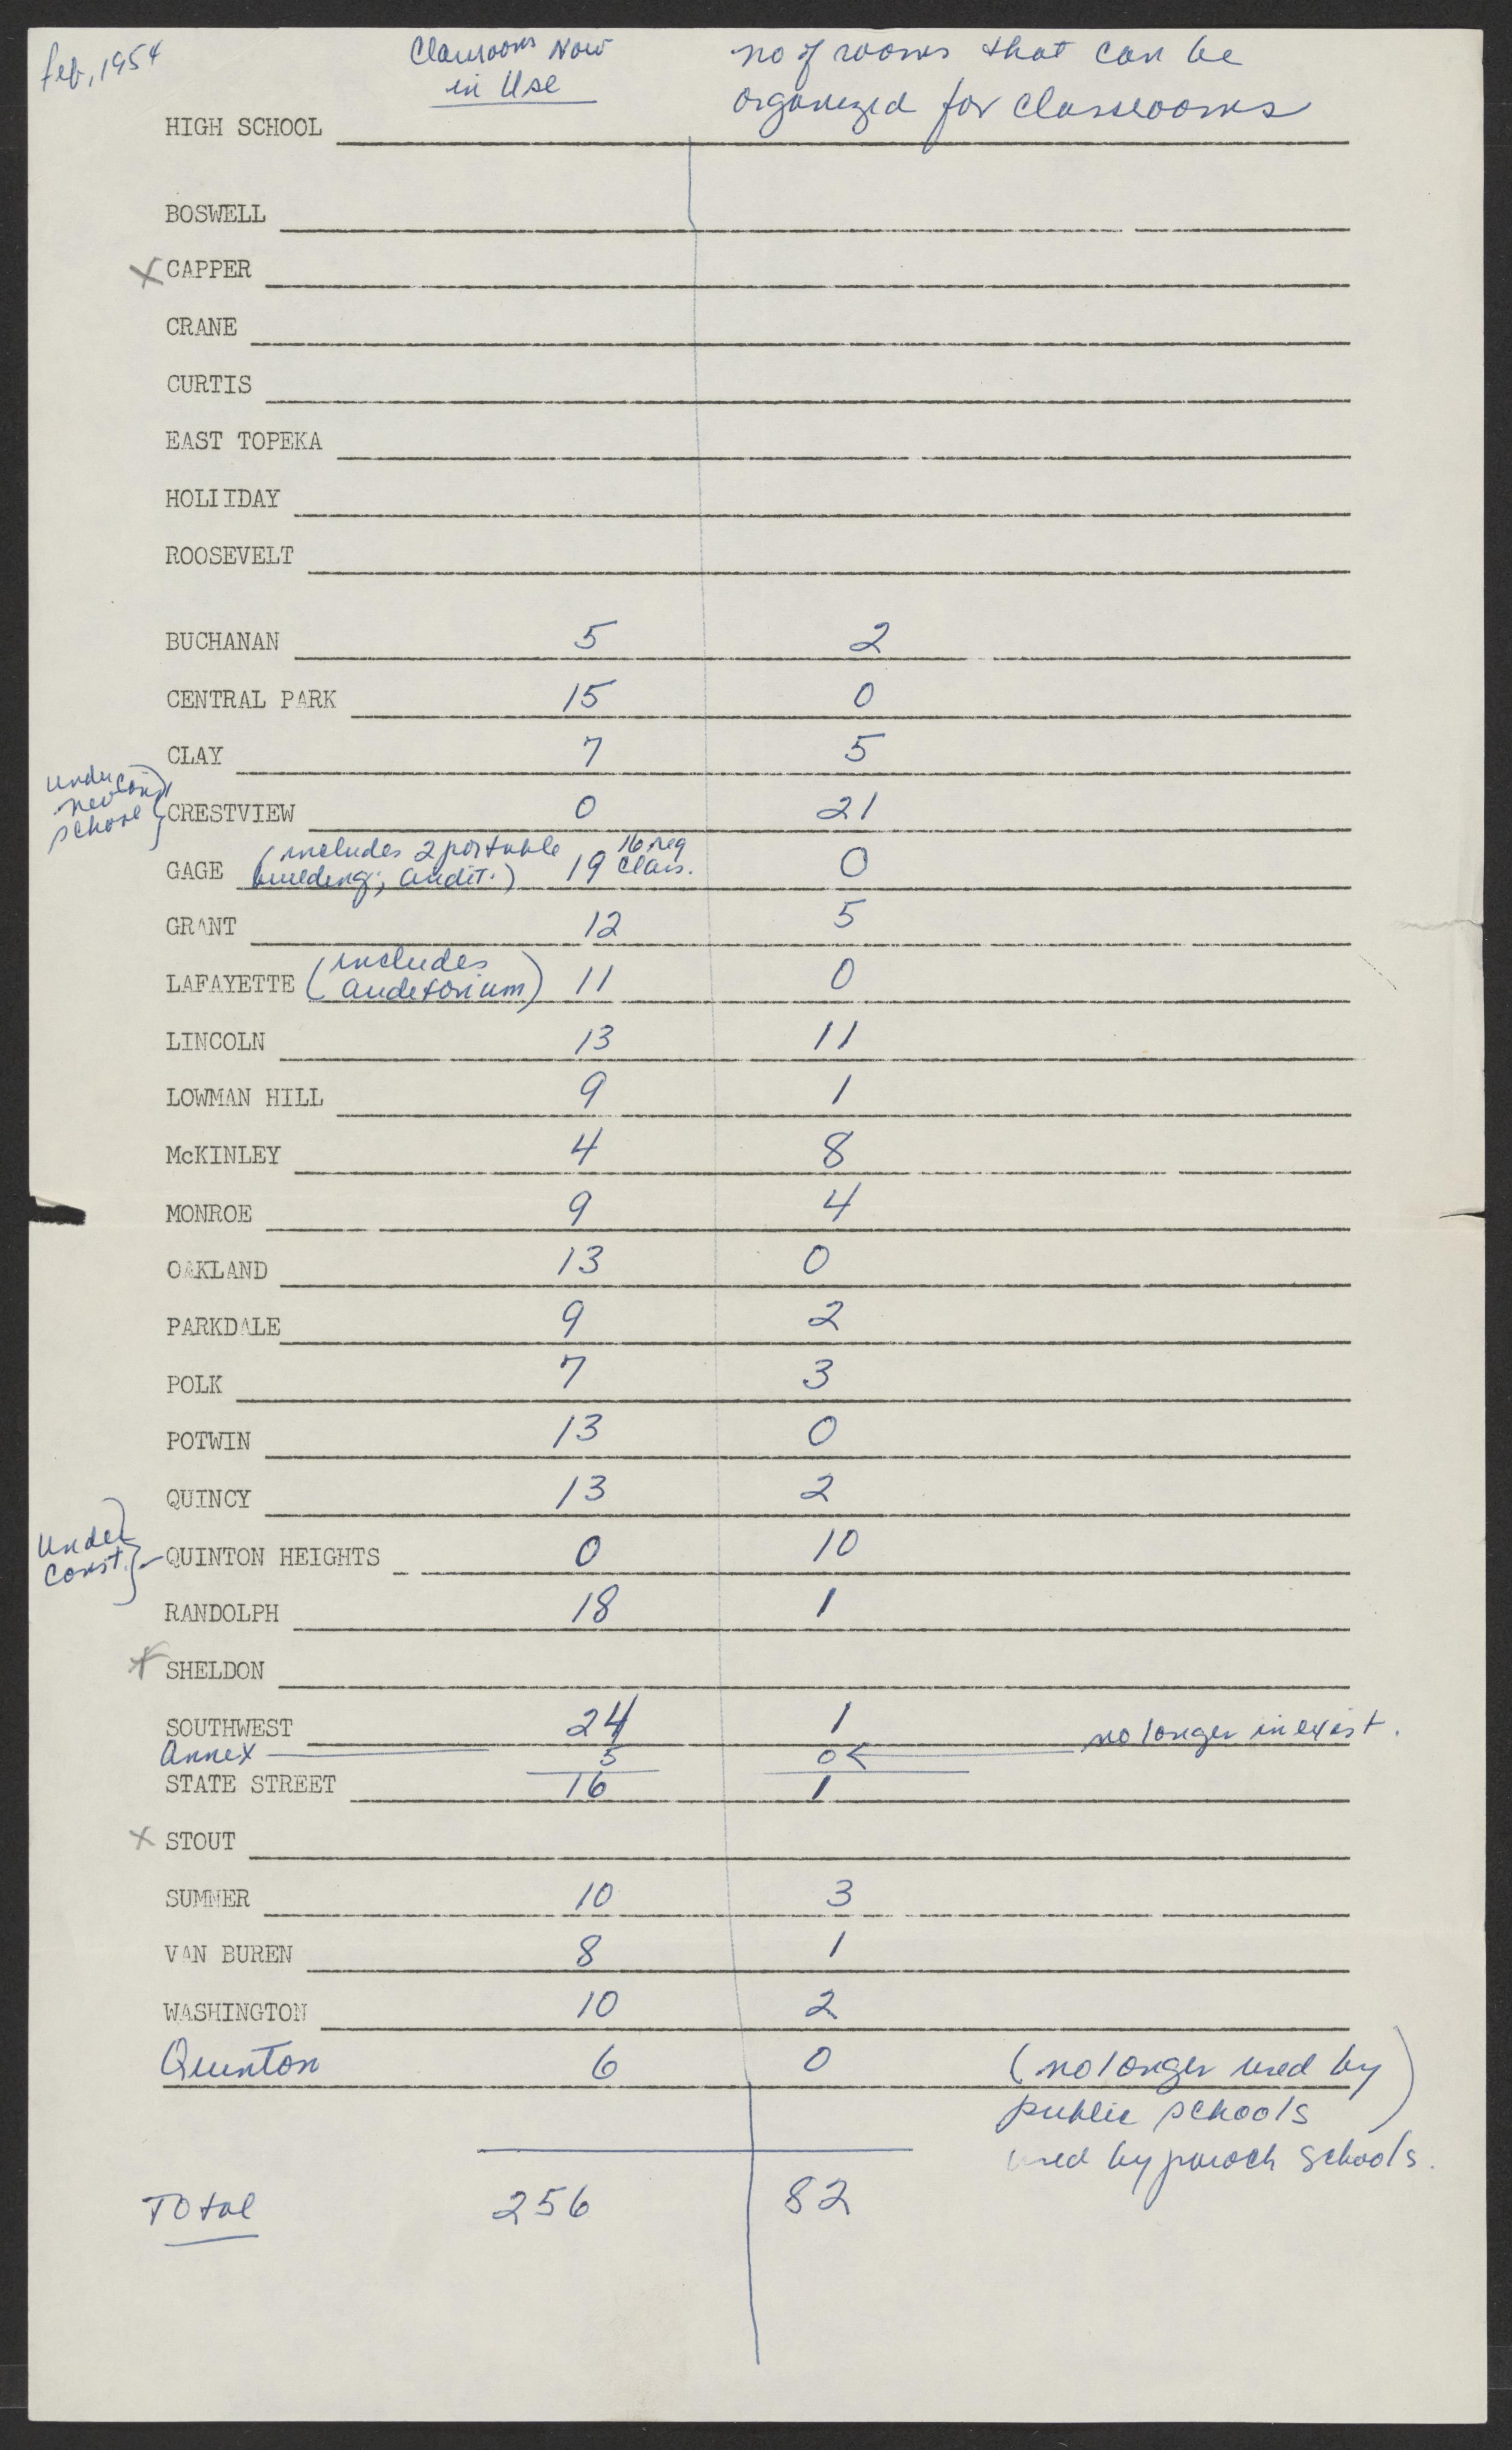 Feb, 1954
Classrooms Now in Use
no of rooms that can be organized for classrooms
HIGH SCHOOL
BOSWELL
X CAPPER
CRANE
CURTIS
EAST TOPEKA
HOLIIDAY
ROOSEVELT
BUCHANAN 5 2
CENTRAL PARK 15 0
CLAY 7 5
under school } CRESTVIEW 0 21
GAGE (includes 2 portable building; audit.) 19 16 reg class. 0
GRANT 12 5
LAFAYETTE (includes auditorium) 11 0
LINCOLN 13 11
LOWMAN HILL 9 1
McKINLEY 4 8
MONROE 9 4
OAKLAND 13 0
PARKDALE 9 2
POLK 7 3
POTWIN 13 0
QUINCY 13 2
Under Const. } - QUINTON HEIGHTS 0 10
RANDOLPH 18 1
X SHELDON
SOUTHWEST 24 1
Annex 5 0 no longer in exist.
STATE STREET 16 1
X STOUT
SUMNER 10 3
VAN BUREN 8 1
WASHINGTON 10 2
Quinton 6 0 (no longer used by public schools)
used by paroch schools.
Total 256 82